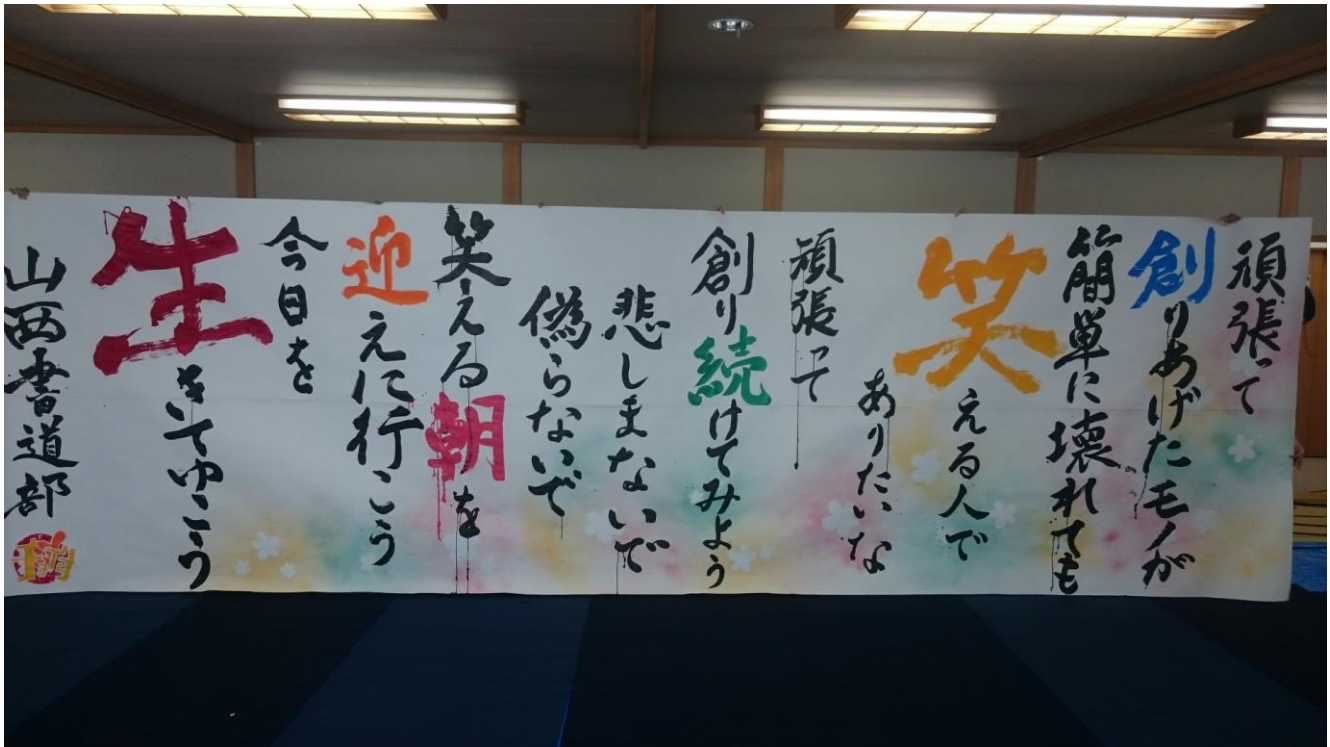 頑張って
創りあげたモノが
簡単に壊れても
笑える人で
ありたいな
頑張って
創り続けてみよう
悲しまないで
偽らないで
笑える朝を
迎えに行こう
今日を
生きてゆこう
山西書道部